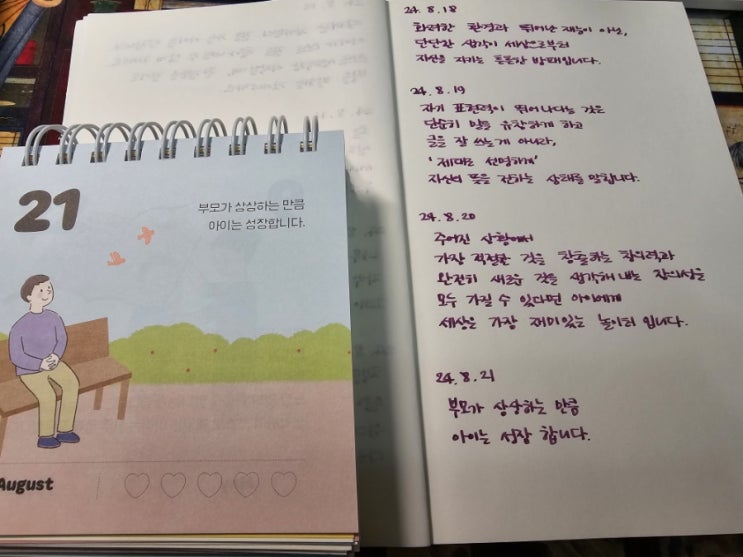 21
부모가 상상하는 만큼
아이는 성장합니다.
August
24. 8. 18
화려한 환경과 뛰어난 재능이 아닌,
단단한 생각이 세상으로부터
자신을 지키는 튼튼한 방패입니다.
24. 8. 19
자기 표현력이 뛰어나다는 것은
단순히 말을 유창하게 하고
글을 잘 쓰는게 아니라,
'제대로 선명하게'
자신의 뜻을 전하는 상태를 말합니다.
24. 8. 20
주어진 상황에서
가장 적절한 것을 창출하는 창의력과
완전히 새로운 것을 생각해 내는 창의성을
모두 가질 수 있다면 아이에게
세상은 가장 재미있는 놀이터 입니다.
24. 8. 21
부모가 상상하는 만큼
아이는 성장 합니다.